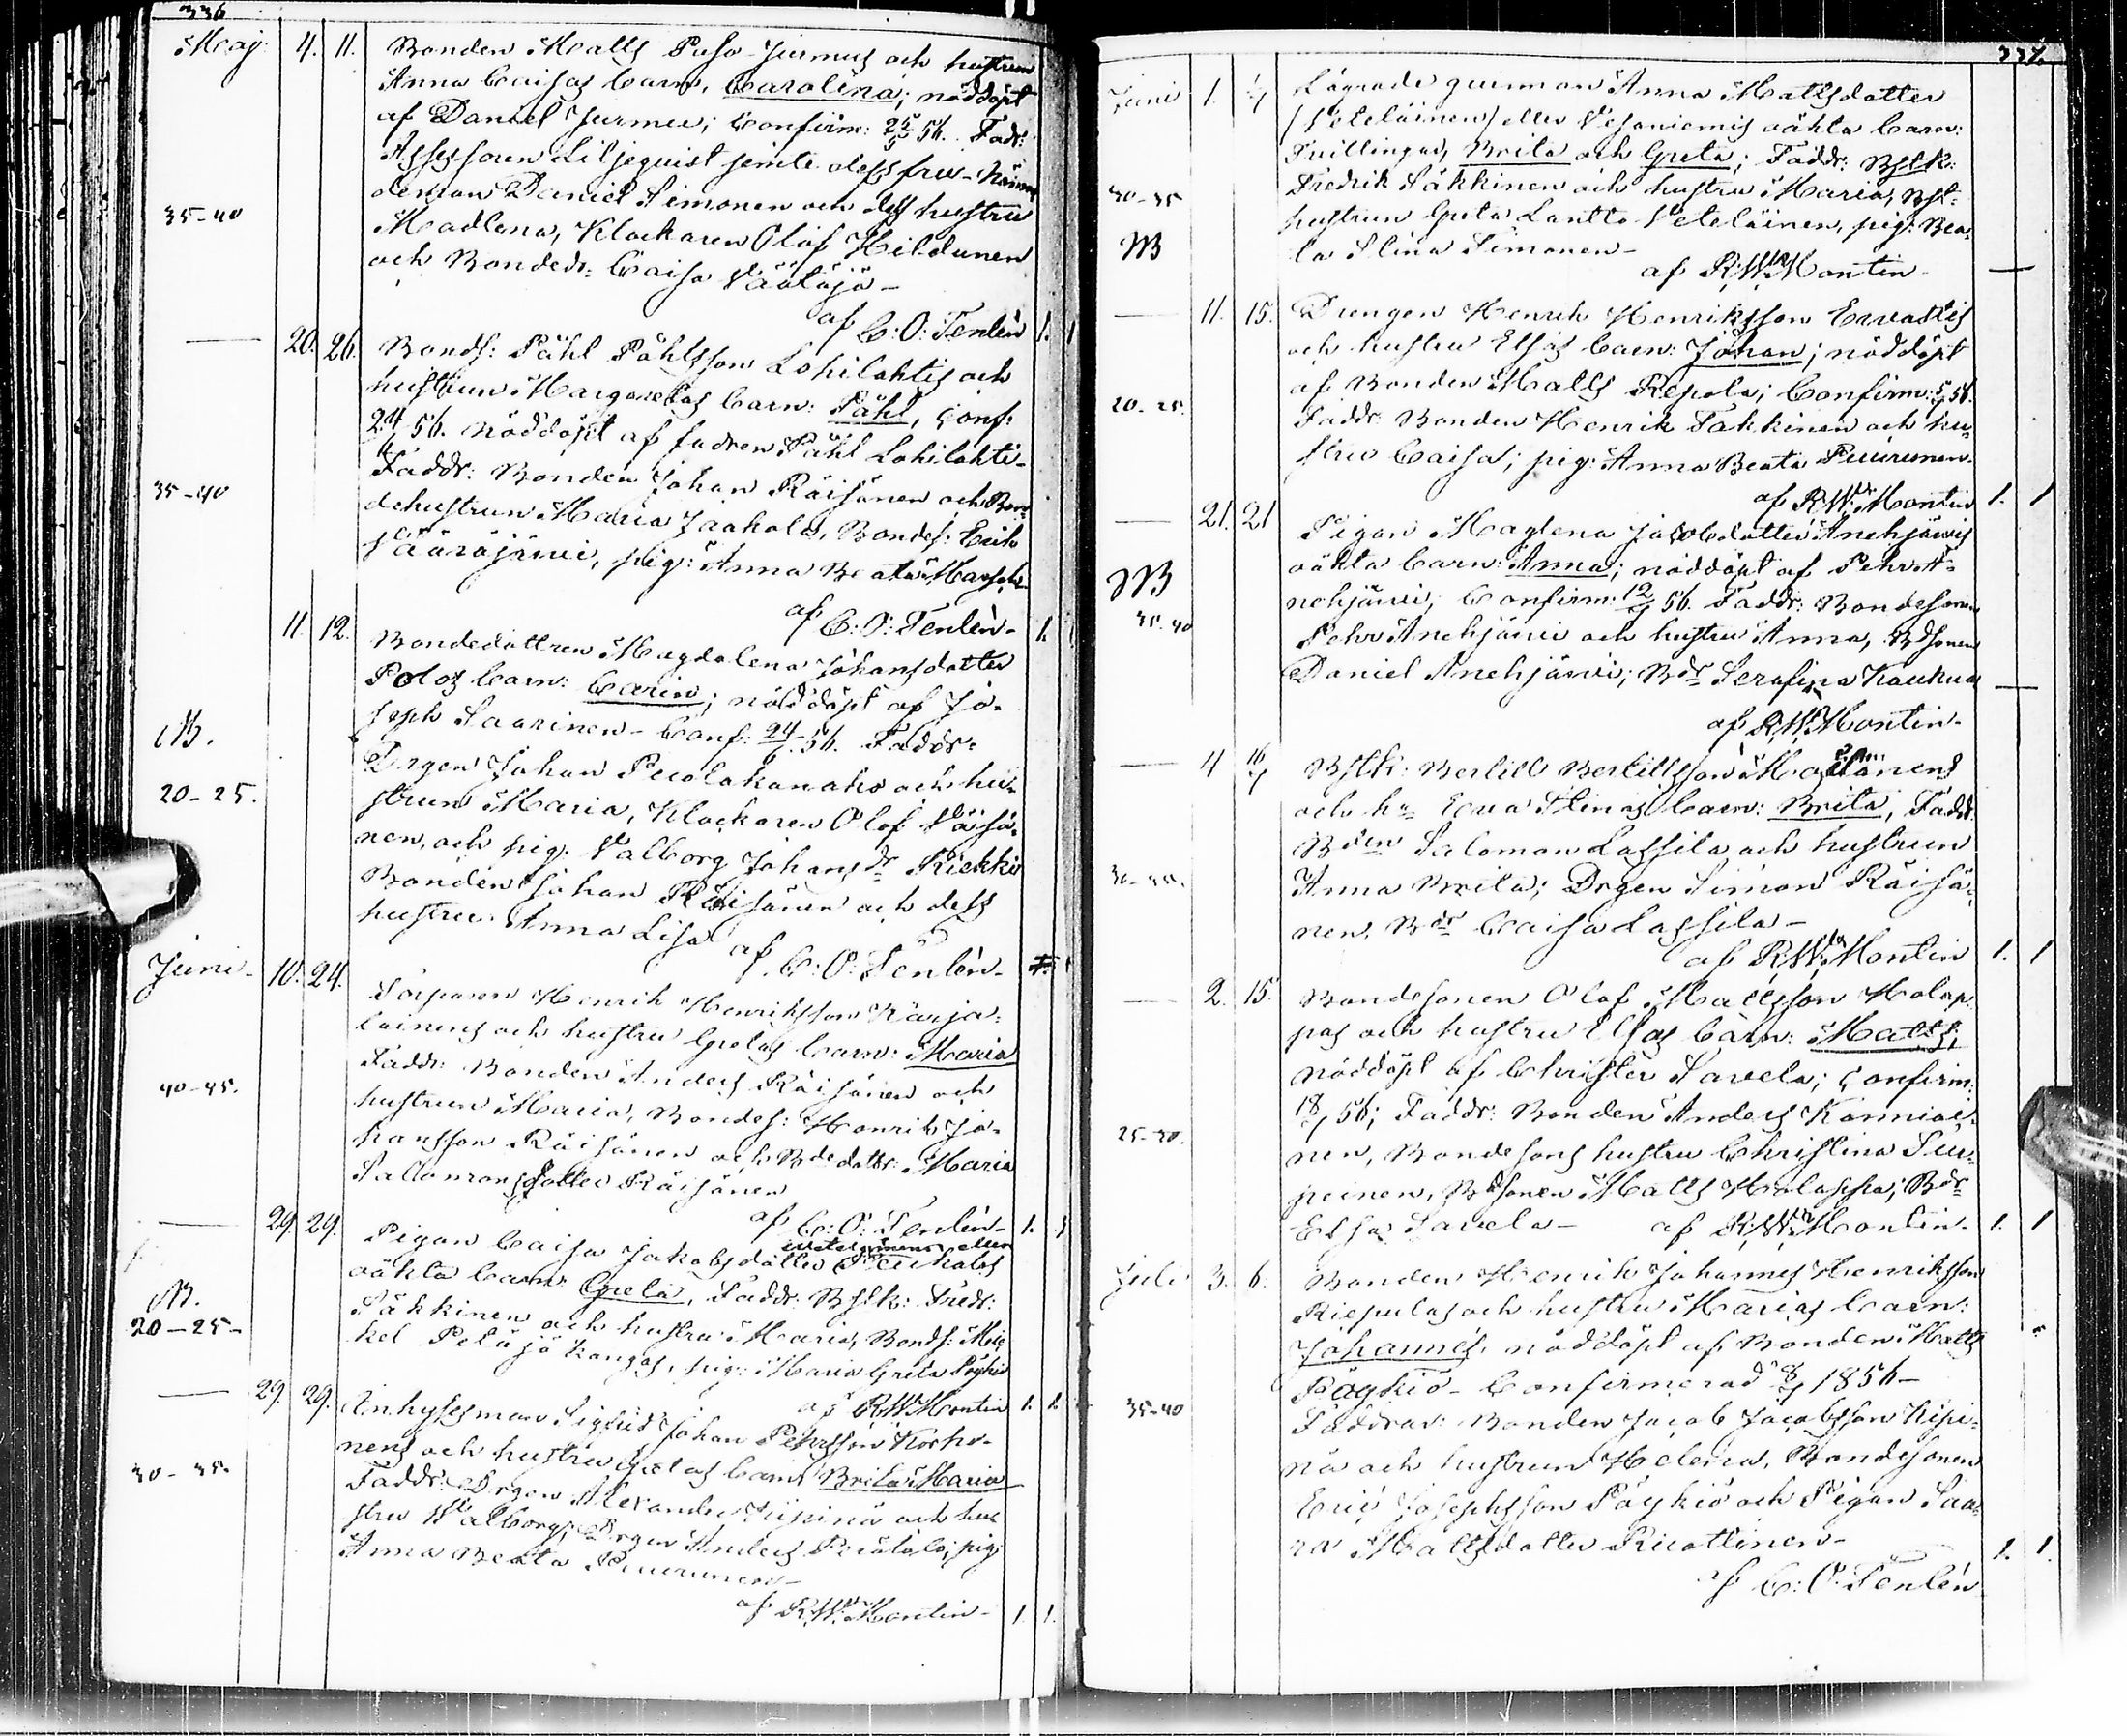 336
Maj. 4. 11. Bonden Matts Puso-Jurmus och hustrun
Anna Caisas barn, Carolina; nöddöpt
af Daniel Jurmu; Confirm: 25/5 56. Fadr:
Assessoren Liljequist jemte dess fru- Nämn
deman Daniel Simonen och dess hustru
35-40
Madlena, Klockaren Olof Hildunen
och Bondedr: Caisa Väätäjä-
af C: O: Tenlén 1. 1
— 20. 26. Bonds: Påhl Påhlsson Lohilahtis och
hustrun Margaretas barn: Påhl, Conf:
24/ 56. nöddöpt af fadren Påhl Lohilahti-
Faddr: Bonden Johan Räisänen och Bon-
35-40
dehustrun Maria Jaakola, Bondes: Erik
Määräjärvi, pig: Anna Beata
af C: O: Tenlén- 1.
11. 12. Bondedottren Magdalena Johansdotter
Polos barn: Carin; nöddöpt af Jo-
seph Saarinen- Conf: 24/ 56. Faddr:
M.
Drgen Johan och hu-
20-25.
strun Maria, Klockaren Olof Väisä-
nen, och pig. Valborg Johansdr Riekki
Bonden Johan Räisänen och dess
hustru Anna Lisa
af C: O: Tenlén-
Juni- 10. 24. Torparen Henrik Henriksson Karja-
lainens och hustru Gretas barn: Maria
Faddr: Bonden Anders Räisänen och
40-45.
hustrun Maria, Bondes: Henrik Jo-
hansson Räisänen och Bdedottr: Maria
Sallomonsdotter Räisänen
af C: O: Tenlén- 1. 1
— 29. 29. Pigan Caisa Jakobsdotter eller
oäkta barn: Greta, Faddr: Bstk: Fredr:
M.
Säkkinen och hustru Maria, Bonds: Mic
20-25-
kel Peläjä Kangas, pig: Maria Greta Pöykiö
af R.W. Montin 1. 1.
— 29. 29. Inhysesman Sigfrid Johan Pehrsson Korho-
nens och hustru Gretas barn Brita Maria
30-35.
Faddr: Drgen Alexander Kipinä och hu
stru Walborg; Drgen Anders pig:
Anna Beata Puurunen-
af R.W. Montin- 1. 1.
337.
Juni 1. 1/7 Lägrade quinnan Anna Mattsdotter
(Veteläinen) eller Vesaniemis oäkta barn:
Tvillingar, Brita och Greta; Faddr: Bstk:
30-35
Fredrik Säkkinen och hustru Maria, Bst:
hustrun Greta Lantto Veteläinen, pig: Bea-
M
ta Stina Simonen-
af R.W. Montin- —
— 11. 15. Drengen Henrik Henriksson Ervastis
och hustru Elsas barn: Johan; nöddöpt
af Bonden Matts Repola; Confirm: 56.
20-25.
Faddr: Bonden Henrik Takkinen och hu-
stru Caisa; pig: Anna Beata Puurunen.
af R.W. Montin 1. 1
— 21. 21 Pigan Maglena Jacobsdotter Anehjärvis
oäkta barn: Anna; nöddöpt af Pehr A-
M
nehjärvi; Confirm: 12/7 56. Faddr: Bondesonen
35-40
Pehr Anehjärvi och hustru Anna, Bdsonen
Daniel Anehjärvi; Bdr Serafina Kaukua —
af R.W. Montin-
— 4 16/7 Bstk: Bertill Bertillsson
och hu Eva Stinas barn: Brita, Faddr:
Bden Salomon Lassila och hustrun
Anna Brita; Drgen Simon Räisä-
nen, Bdr Caisa Lassila-
af R.W. Montin 1. 1
— 2. 15. Bondesonen Olof Mattsson Holap-
pas och hustru Elsas barn: Matts;
nöddöpt af Christer Savela; Confirm:
18/7 56; Faddr: Bonden Anders Kanniai-
25-30.
nen, Bondesons hustru Christina Sep-
peinen, Bdsonen Matts Holappa; Bdr
Elsa Savela- af R.W. Montin- 1. 1
Juli 3. 6. Bonden Henrik Johannes Henriksson
Riepulas och hustru Marias barn:
Johannes, nöddöpt af Bonden Matts
Pöykiö- Confirmerad d 8/7 1856-
35-40
Faddrar: Bonden Jacob Jacobsson Kipi-
nä och hustrun Helena, Bondesonen
Eric Josephsson Pöykiö och Pigan Saa-
ra Mattsdotter Ruottinen-
af C: O: Tenlén 1. 1.